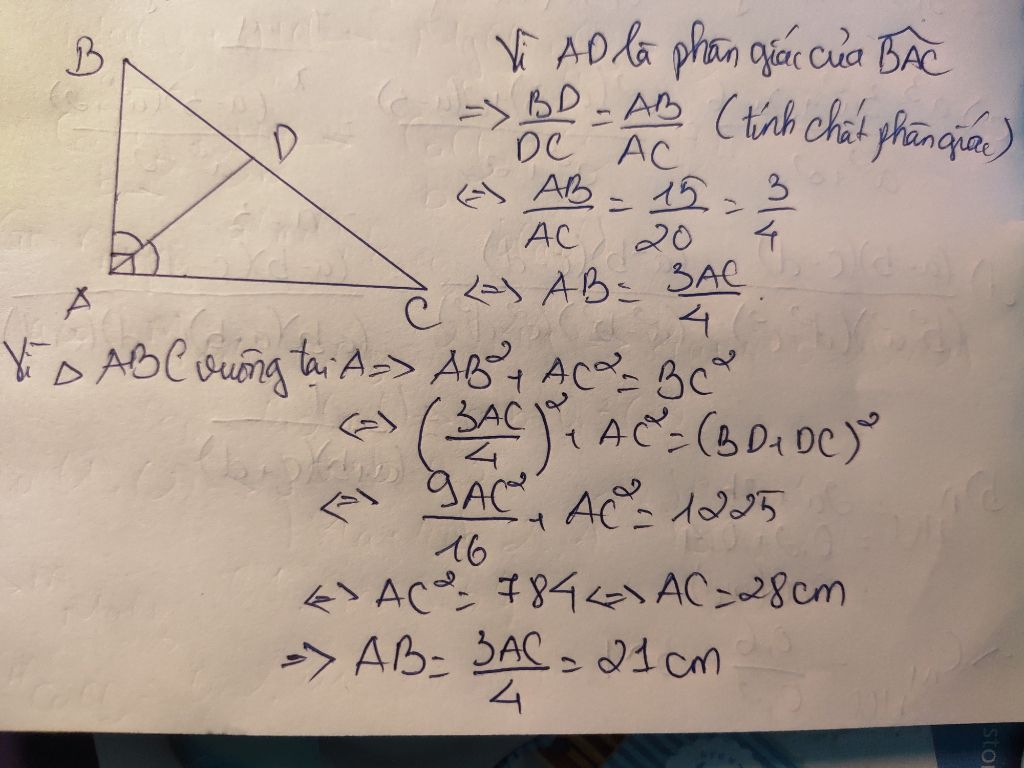 B
D
A
C
Vì AD là phân giác của \widehat{BAC}
=> BD/DC = AB/AC (tính chất phân giác)
<=> AB/AC = 15/20 = 3/4
<=> AB = 3AC/4.
Vì △ ABC vuông tại A => AB² + AC² = BC²
<=> (3AC/4)² + AC² = (BD + DC)²
<=> 9AC²/16 + AC² = 1225
<=> AC² = 784 <=> AC = 28cm
=> AB = 3AC/4 = 21 cm